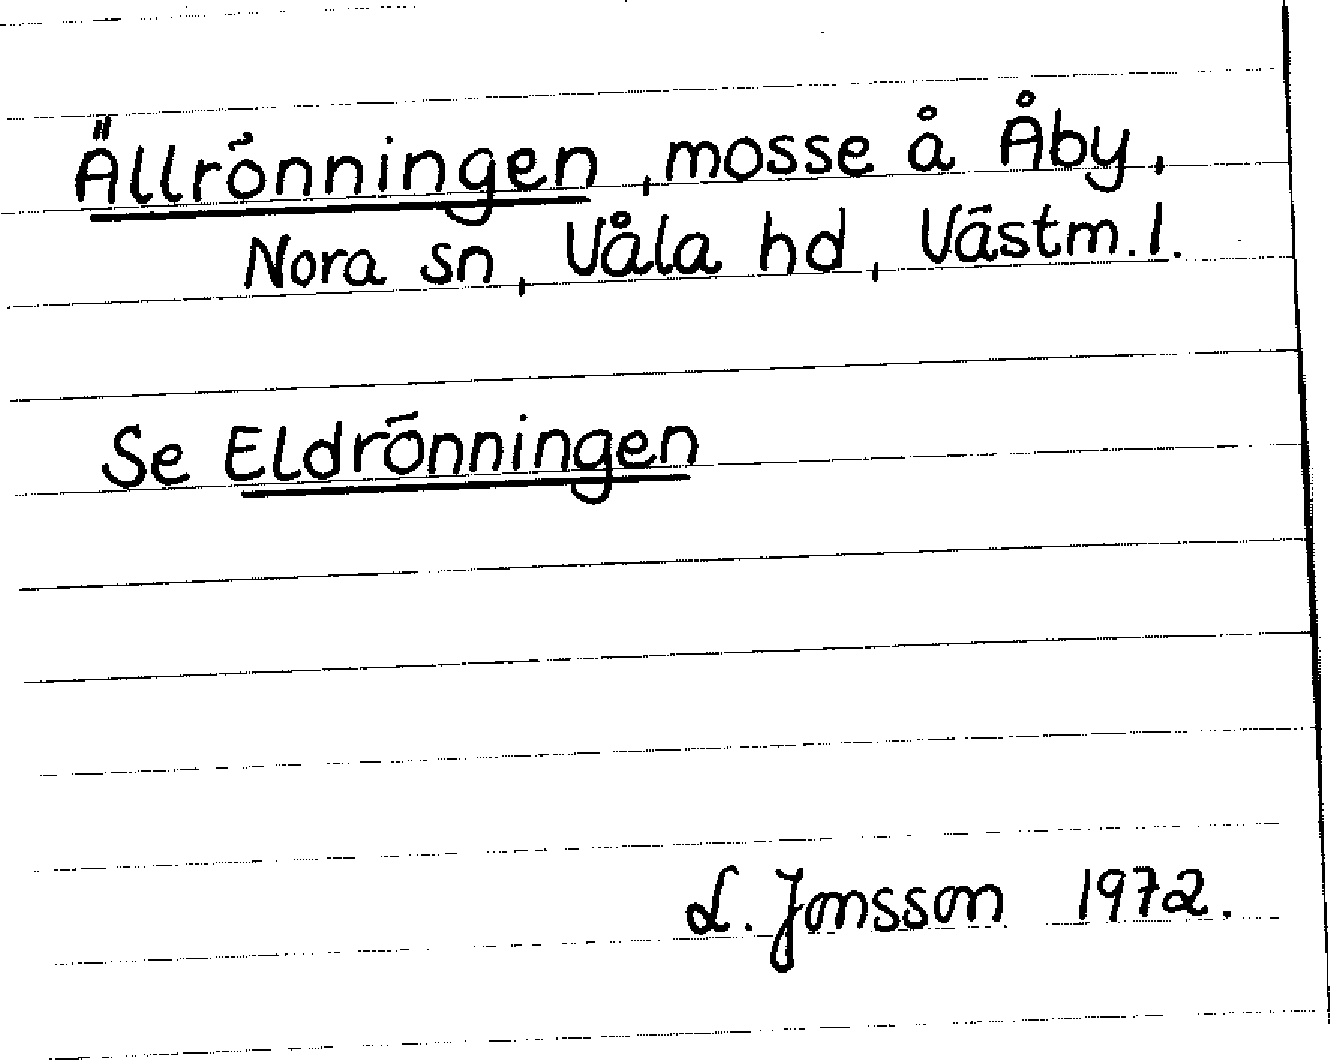 Ällrönningen, mosse å Åby,
Nora sn, Våla hd, Västm. l.
Se Eldrönningen
L. Jonsson 1972.